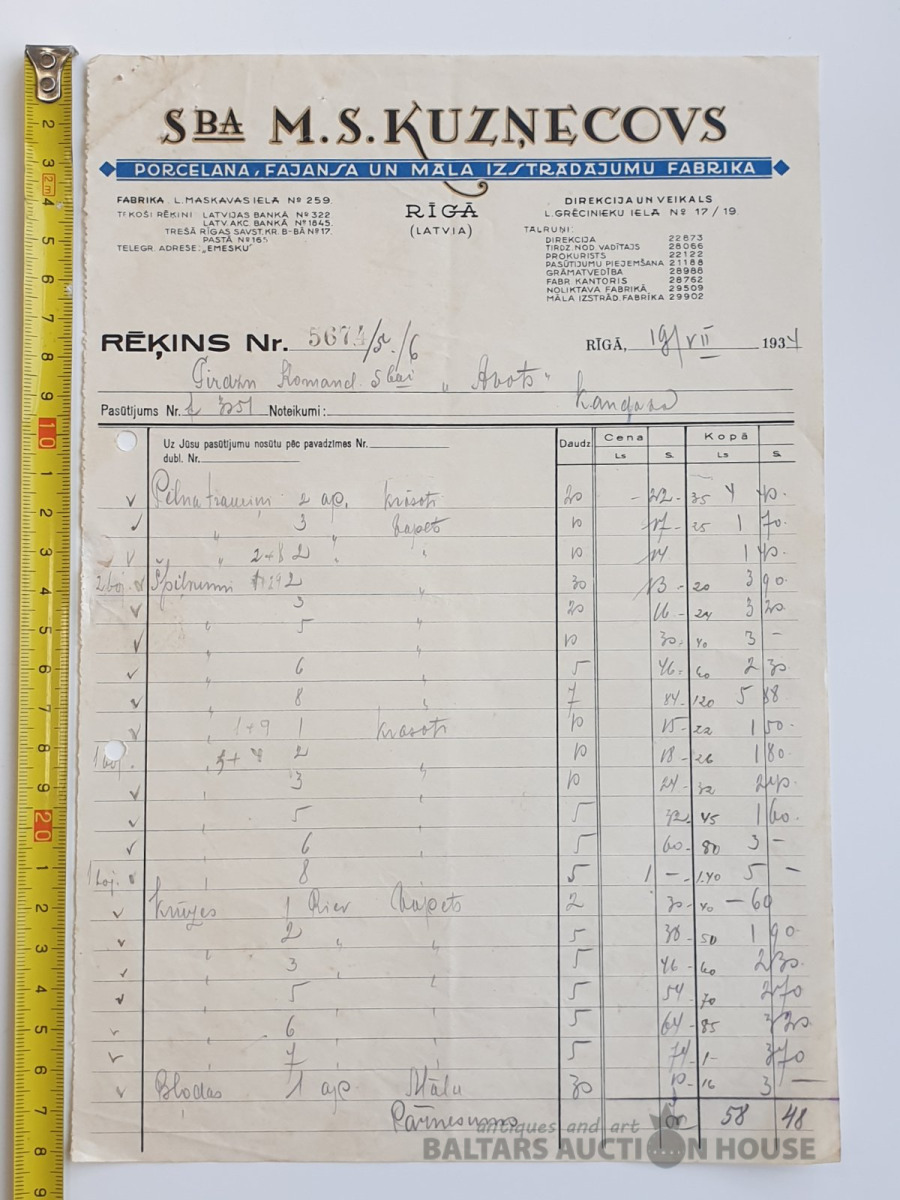 SBA M.S.KUZŅECOVS
PORCELANA, FAJANSA UN MĀLA IZSTRĀDĀJUMU FABRIKA
FABRIKA L. MASKAVAS IELĀ Nº 259.
TEKOŠI RĒĶINI LATVIJAS BANKĀ Nº 322
LATV. AKC. BANKĀ Nº 1845.
TREŠĀ RĪGAS SAVST. KR. B-BĀ Nº 17.
PASTĀ Nº 165
TELEGR. ADRESE: „EMESKU"
RĪGĀ
(LATVIA)
DIREKCIJA UN VEIKALS
L. GRĒCINIEKU IELĀ Nº 17/19.
TALRUŅI:
DIREKCIJA 22873
TIRDZ. NOD. VADĪTAJS 28066
PROKURISTS 22122
PASŪTIJUMU PIEJEMŠANA 21188
GRĀMATVEDĪBA 28988
FABR. KANTORIS 28762
NOLIKTAVA FABRIKĀ 29509
MĀLA IZSTRĀD. FABRIKA 29902
RĒĶINS Nr. 5674/5./6 RĪGĀ, 19/VII 1934
Komand. Sbai „Avots"
Pasūtijums Nr. 351 Noteikumi: Kandavā
Uz Jūsu pasūtijumu nosūtu pēc pavadzīmes Nr.
dubl. Nr.
Daudz Cena Kopā
Ls S. Ls S.
2 ap. krāsoti 20 - 22 - 35 4 40.
„ 3 „ kapets 10 17 - 25 1 70.
„ 2+8 2 „ „ 10 14 1 40.
2 Špilkumi 2 „ 30 13 - 20 3 90.
„ 3 „ 20 16 - 24 3 20
„ 5 „ 10 30. 40 3 -
„ 6 „ 5 46 - 60 2 30
„ 8 „ 7 84 - 120 5 88
„ 1+9 1 krāsoti 10 15 - 22 1 50.
„ 2 „ 10 18 - 26 1 80.
„ 3 „ 10 24 - 32 2 40.
„ 5 „ 5 32 45 1 60.
„ 6 „ 5 60 - 80 3 -
„ 8 „ 5 1 - 1.40 5 -
Krūzes 1 Kapets 2 30 - 40 - 60
„ 2 „ „ 5 38 - 50 1 90.
„ 3 „ „ 5 46 - 60 2 30.
„ 5 „ „ 5 54 70 2 70
„ 6 „ „ 5 64 - 85 3 20
„ 7 „ „ 5 74 1- 3 70
Blodas 1 ap. Māla 30 10 - 16 3 -
Pārnesums 58 48
antiques and art
BALTARS AUCTION HOUSE